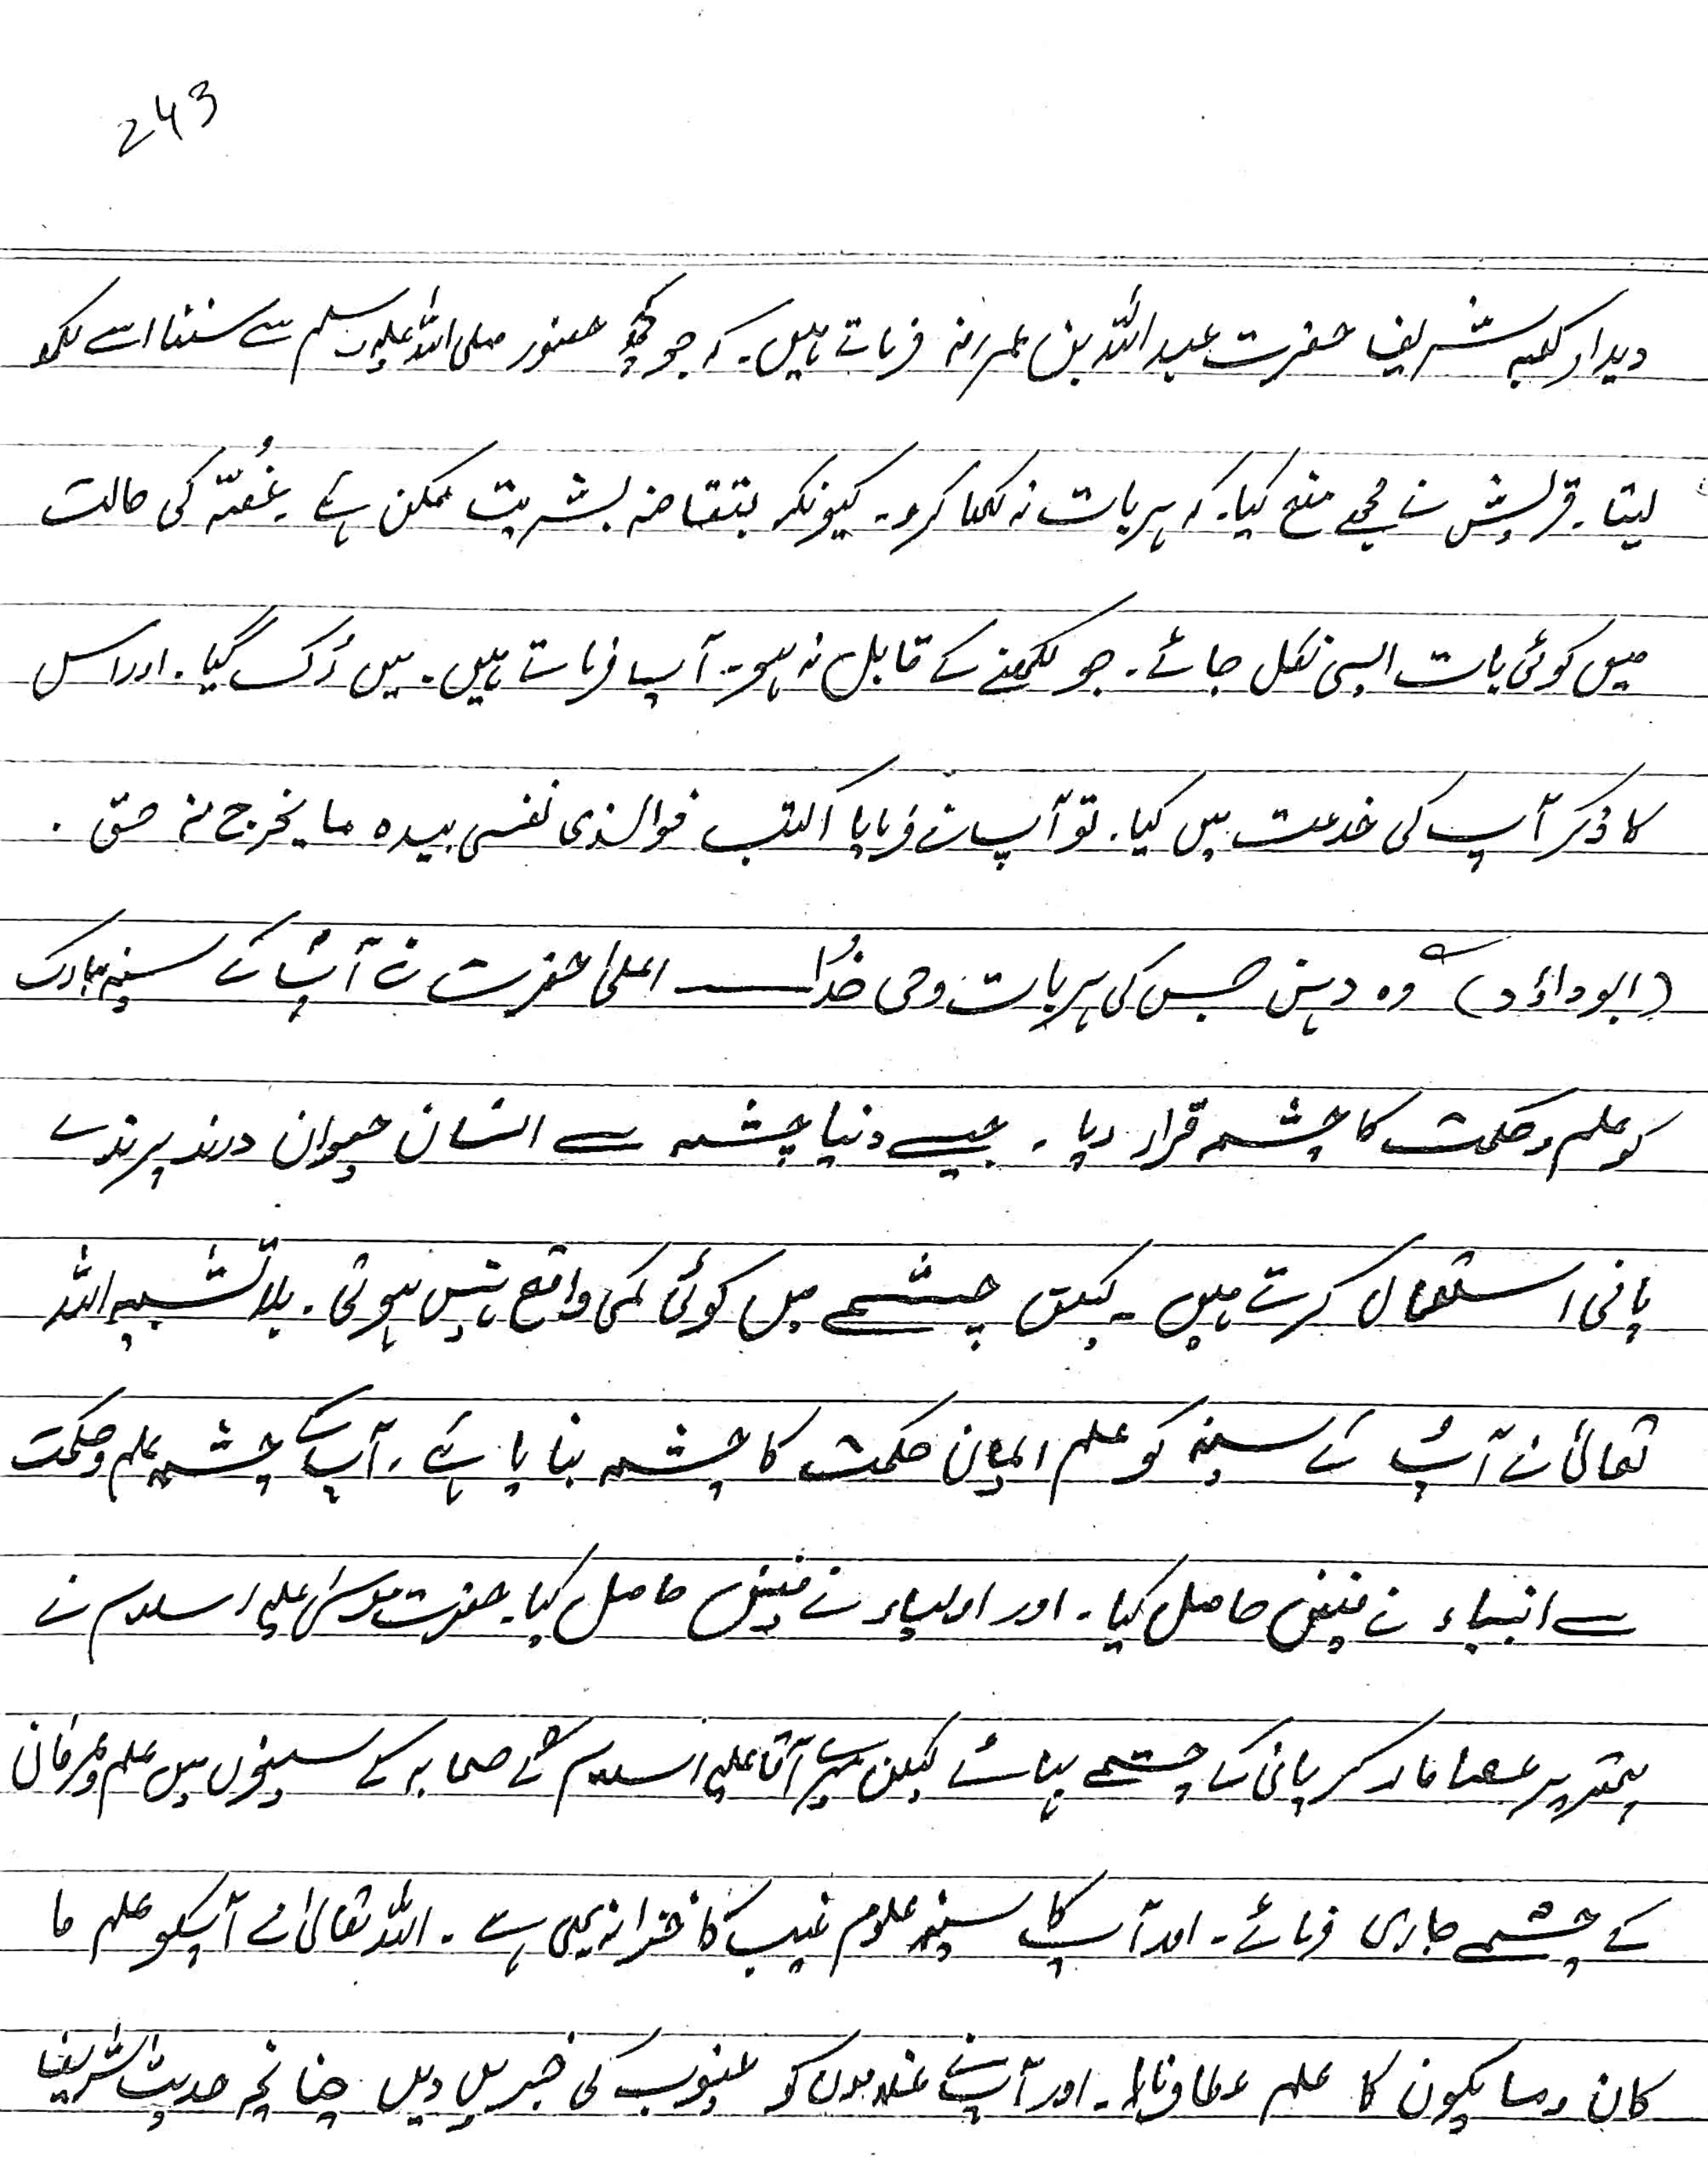 243
دیدار کعبہ شریف حضرت عبداللہ بن عمررضہ فرماتے ہیں۔ کہ جو کچھ حضور صلی اللہ علیہ وسلم سے سنتا اسے لکھ
لیتا۔ قریش نے مجھے منع کیا۔ کہ ہر بات نہ لکھا کرو۔ کیونکہ بتقاضہ بشریت ممکن ہے غُصّہ کی حالت
میں کوئی بات ایسی نکل جائے۔ جو لکھنے کے قابل نہ ہو۔ آپ فرماتے ہیں۔ میں رُک گیا۔ اور اس
کا ذکر آپ کی خدمت میں کیا۔ تو آپ نے فرمایا اکتب فوالذی نفسی بیدہ ما یخرج منہ حق ۔
(ابوداؤد) وہ دہن جس کی ہر بات وحی خدا ـــــ اعلیٰ حضرت نے آپؐ کے سینہ مبارک
کو علم و حکمت کا چشمہ قرار دیا ۔ جیسے دنیا چشمہ سے انسان حیوان درند پرندے
پانی استعمال کرتے ہیں ۔ لیکن چشمے میں کوئی کمی واقع نہیں ہوتی ۔ بلا تشبیہ اللہ
تعالیٰ نے آپؐ کے سینہ کو علم ایمان حکمت کا چشمہ بنایا ہے ۔ آپ کے چشمہ علم و حکمت
سے انبیاء نے فیض حاصل کیا ۔ اور اولیاء نے فیض حاصل کیا۔ حضرت موسیٰ علیہ السلام نے
پتھر پر عصا مار کر پانی کے چشمے بہائے لیکن میرے آقا علیہ السلام نے صحابہ کے سینوں میں علم و عرفان
کے چشمے جاری فرمائے۔ اور آپ کا سینہ علوم غیب کا خزانہ بھی ہے ۔ اللہ تعالیٰ نے آپکو علم ما
کان وما یکون کا علم عطا فرمایا۔ اور آپ نے غلاموں کو غیوب کی خبریں دیں چنانچہ حدیث شریف